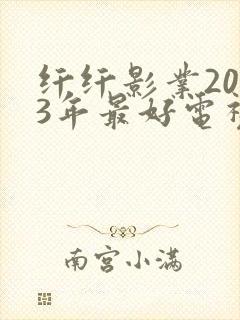 纤纤影业20
3年最好电视
南宫小满